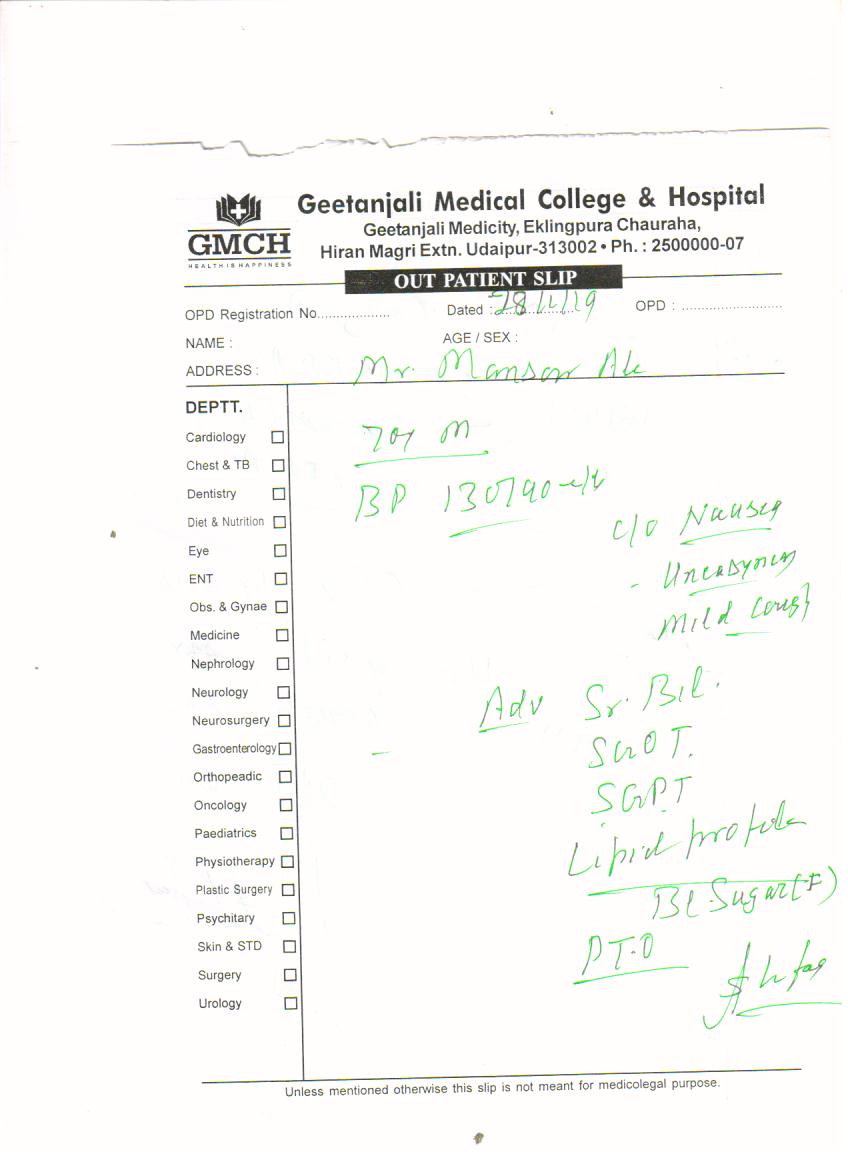 Geetanjali Medical College & Hospital
GMCH
HEALTH IS HAPPINESS
Geetanjali Medicity, Eklingpura Chauraha,
Hiran Magri Extn. Udaipur-313002 • Ph. : 2500000-07
OUT PATIENT SLIP
OPD Registration No................... Dated : 28/1/19 OPD : ..........................
NAME : AGE / SEX :
ADDRESS : Mr. Mansoor Ali
DEPTT.
Cardiology
Chest & TB
Dentistry
Diet & Nutrition
Eye
ENT
Obs. & Gynae
Medicine
Nephrology
Neurology
Neurosurgery
Gastroenterology
Orthopeadic
Oncology
Paediatrics
Physiotherapy
Plastic Surgery
Psychitary
Skin & STD
Surgery
Urology
70y M
BP 130/90
c/o Nausea
- Uneasyness
Mild Cough
Adv Sr. Bil.
SGOT.
SGPT
Lipid profile
Bl. Sugar (F)
P.T.O
Unless mentioned otherwise this slip is not meant for medicolegal purpose.